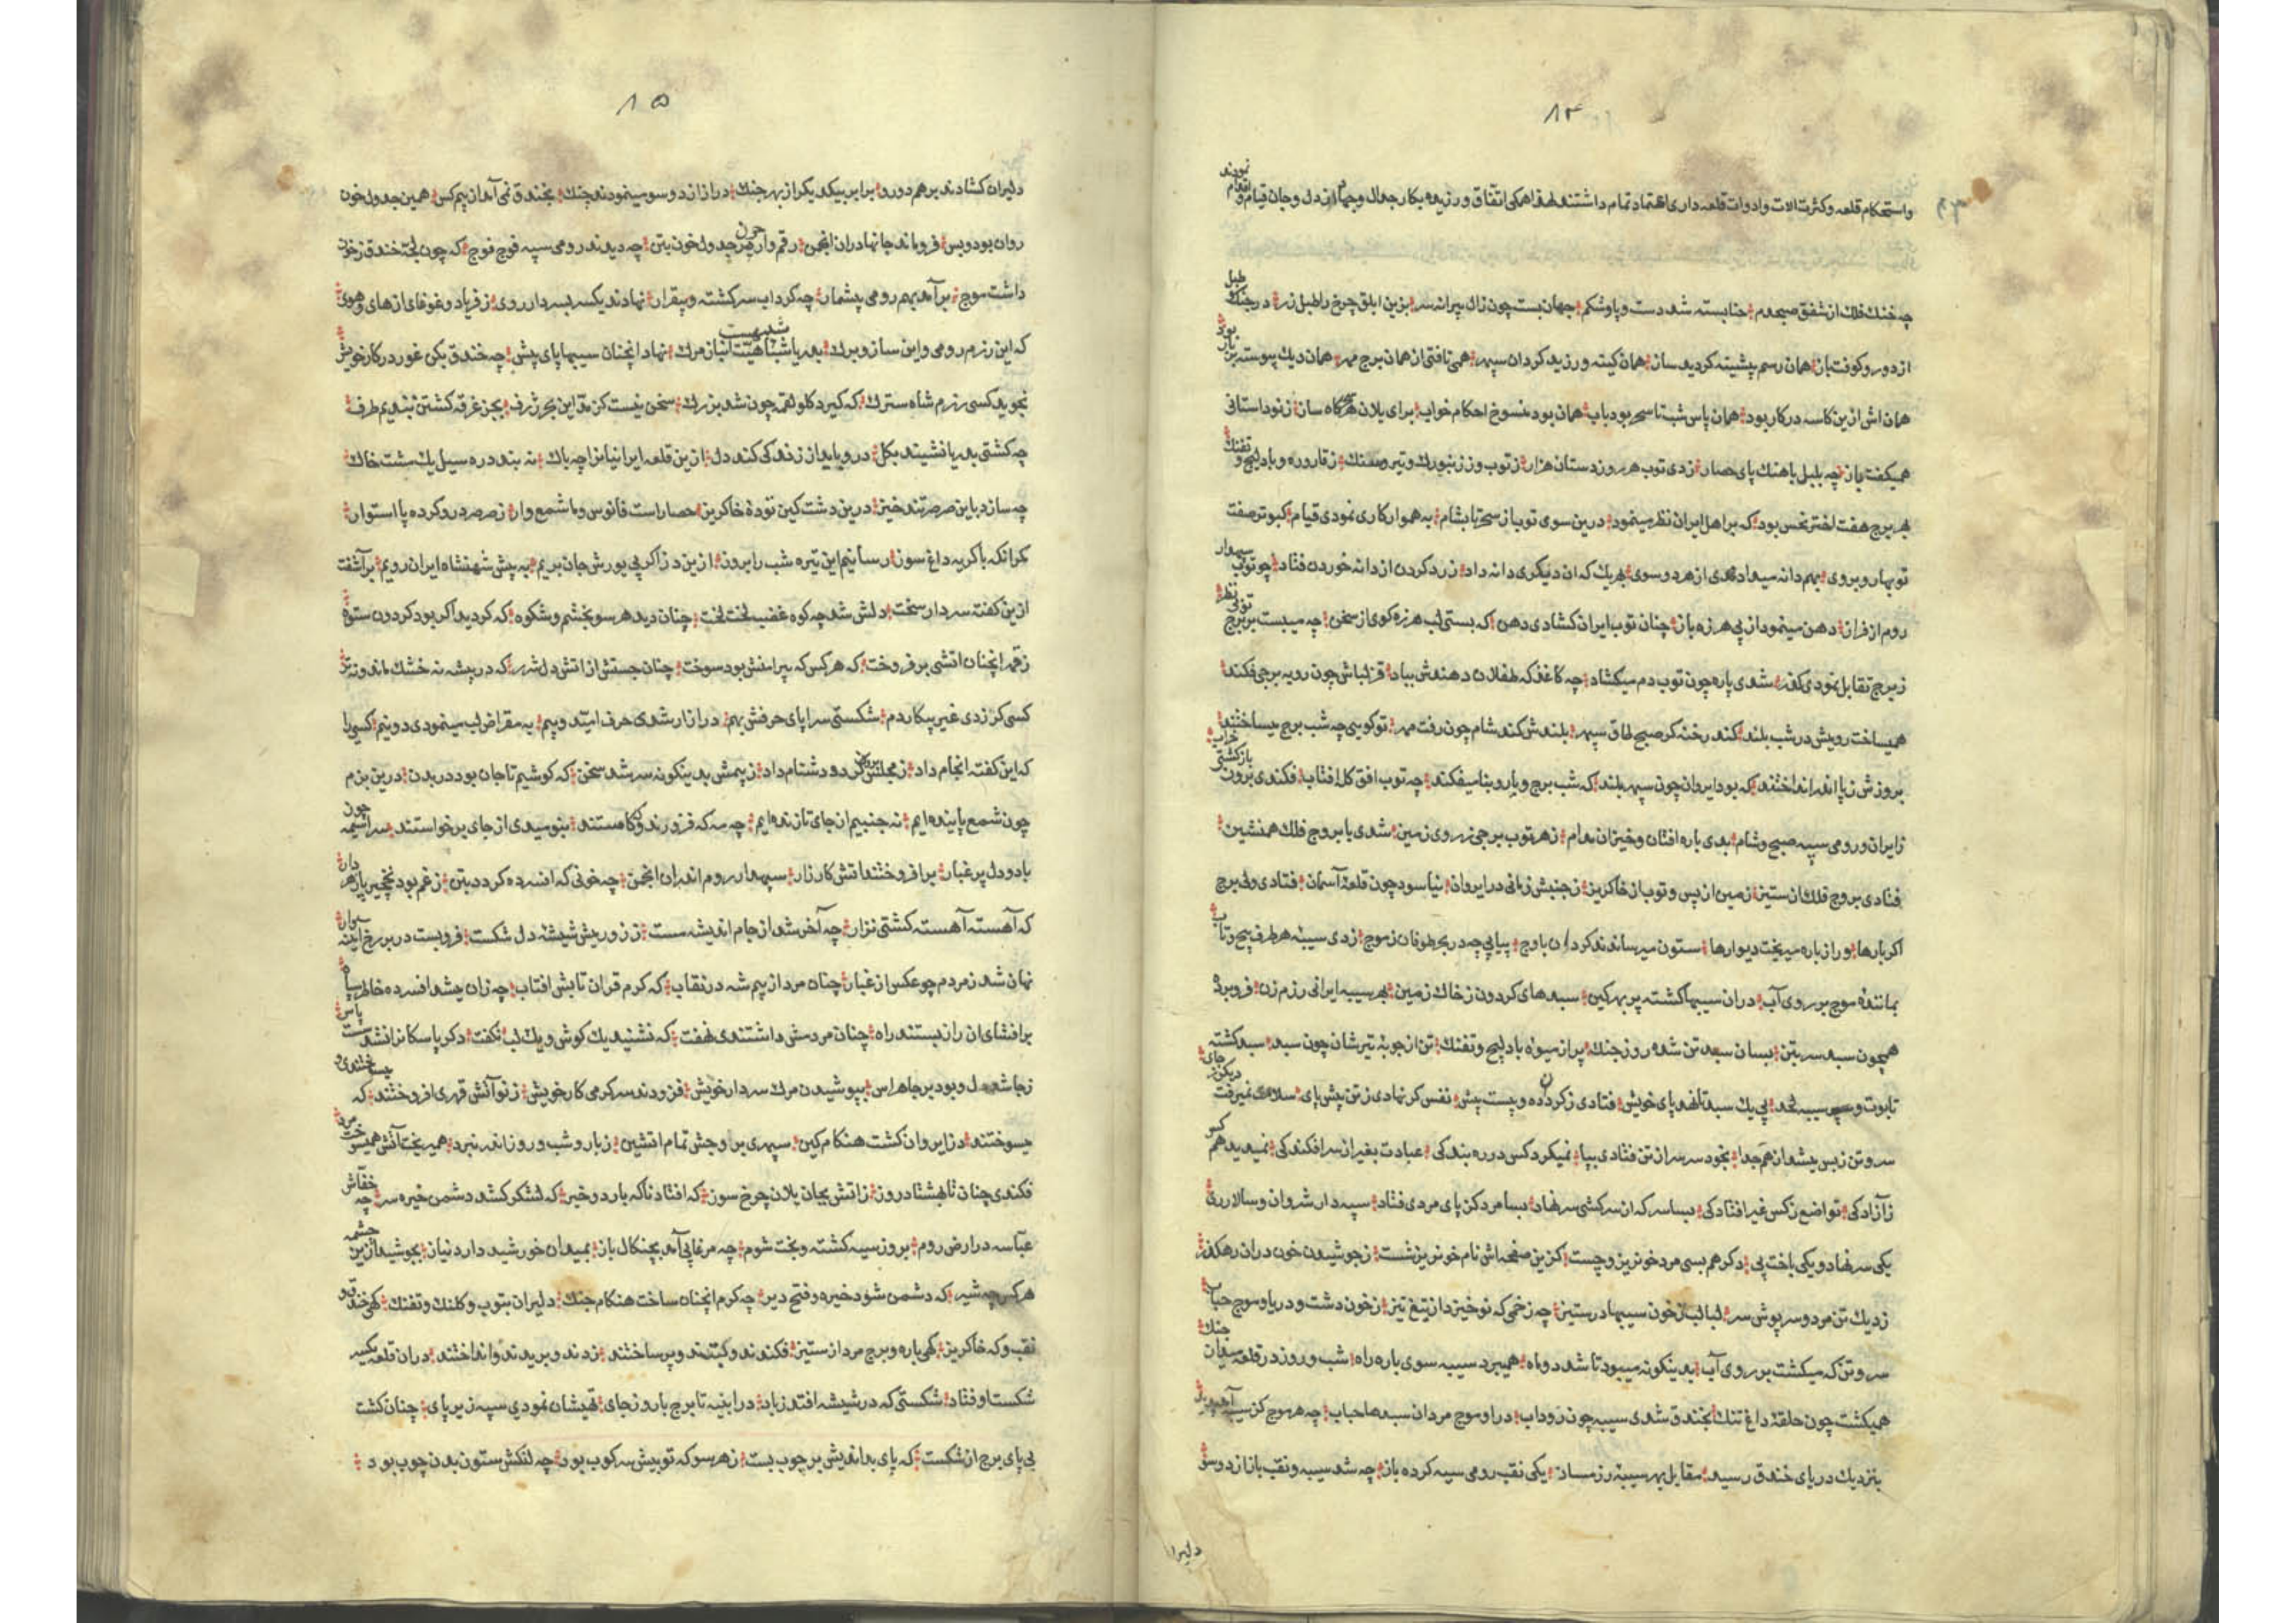 ۸۴
واستحکام قلعه وکثرت الات وادوات قلعه داری اعتماد تمام داشتند لهذا همکی اتفاق ورزیده بکار جدال وجهاد از دل وجان قیام و اقدام نمودند
چه خنك فلك از شفق صبحدم حنا بسته شد دست وپا وشکم جهان بست چون زال پیرانه سر بزین ابلق چرخ را طبل زر در جنك طبل
از دور و کوفت باز همان رسم پیشینه کردید ساز همان کینه ورزید کردان سپهر همی تافتی از همان برج مهر همان دیك پیوسته
همان اش ازین کاسه در کار بود همان پاس شب تا سحر بود باب همان بود منسوخ احکام خواب برای یلان سان ز نو داستانی
همیکفت باز چه بلبل باهنك پای حصار زدی توب هر روز دستان هزار ز توب و ز زنبورك و تیر و تفنك ز قاروره و بادلیج و تفنك
بهر برج هفت اختر نحس بود که بر اهل ایران نظر مینمود درین سوی توب از سحر تا بشام به هموار کاری نمودی قیام کبوتر صفت
توبها روبروی بهم دانه میدادی از هر دو سوی بهر یك که ان دیکری دانه داد ز رد کردن از دانه خوردن فتاد چو توب سپهدار
روم از فراز دهن مینمود از پی هرزه باز چنان توب ایران کشادی دهن که بستی لب هرزه کوی از سخن چه میبست بر برج توپی نظر
ز برج تقابل نمودی کذر شدی پاره چون توب دم میکشاد چه کاغذ که طفلان دهندش بباد قزلباش چون رو به برجی فکند
همیساخت رویش در شب بلند کند رخنه کر صبح طاق سپهر بلندش کند شام چون رفت مهر تو کویی چه شب برج میساختند
بروزش ز پا اندر انداختند که بود ایروان چون سپهر بلند که شب برج و بارو بنا میفکند چه توب افق کل افتاب فکندی برون
ز ایران و رومی سپه صبح و شام بدی باره افتان و خیزان مدام ز هر توب برجی ز روی زمین شدی با بروج فلك همنشین
فتادی بروج فلك ان ستیز زمین از پس و توب از خاکریز ز جنبش زمانی در ایروان نیاسود چون قلعه آسمان فتادی ولی برج
اکر بارها ور از باره میریخت دیوارها ستون میرساندند کردان باوج پیاپی چه در بحر طوفان ز موج زدی سیبه هر طرف پیچ وتاب
بمانند موج بر روی آب دران سیبها کشته پر بهر کین سبدهای کردون ز خاك زمین بهر سیبه ایرانی رزم زن فرو برد
همچون سبد سر بتن بسان سبد تن شده روز جنك پر از میوه بادلیج و تفنك تن از چوبه تیر شان چون سبد سبد کشته
تابوت و سیبه لحد پی یك سبد تا نهد پای خویش فتادی ز کردان ده و بیست پیش نفس کر نهادی ز تن پیش پای سلامت نمیرفت
سر و تن ز بس میشد از هم جدا بخود سر سر از تن فتادی بپا نمیکرد کس در ره بندکی عبادت بغیر از سر افکندکی نمیدید هم
ز آزادکی تواضع ز کس غیر افتادکی بسا سر که ان سرکشی سر نهاد بسا مرد کز پای مردی فتاد سپه دار شروان و سالار ری
یکی سر نهاد و یکی باخت پی دکر هم بسی مرد خونریز و چست کزین صفحه اش نام خونریز شست ز جوشیدن خون دران رهکذر
ز دیك تن مرد و سر پوش سر لبالب ز خون سیبها در ستیز چه زخمی که نو خیزد از تیغ تیز ز خون دشت و دریا و موج حباب
سر و تن که میکشت بر روی آب بدینکونه میبود تا شد دو ماه همیبرد سیبه سوی باره راه شب و روز در قلعه جنك
همیکشت چون حلقه داغ تنك بخندق شدی سیبه چون رود اب در او موج مردان سبدها حباب چه هر موج کز سیبه
بنزدیك دریای خندق رسید مقابل بهر سیبه رزمساز یکی نقب رومی سپه کرده باز چه شد سیبه و نقب باز از دو سو
دلیرا
۸۵
دلیران کشادند بر هم دو رو برابر بیکدیکر از بهر جنك دراز از دو سو مینمودند چنك بخندق نمی آمد از بیم کس همین جدول خون
روان بود و بس فرو ماند جانها دران انجمن رقم وار بر جدول خون بتن چه دیدند رومی سپه فوج فوج که چون لجه خندق ز خون
داشت موج بر آمد بهم رومی بیشمار چه کرداب سرکشته و بیقرار نهادند یکسر بسردار روی ز فریاد و غوغای از های و هوی
که این رزم رومی و این ساز و برك بدریا شبیهست نهاد انچنان سیبها پای پیش چه خندق یکی غور در کار خویش
نجوید کسی رزم شاه سترك که کیرد کلو لقمه چون شد بزرك سخن نیست کز مد این بحر ژرف بجز غرقه کشتن نبندیم طرف
چه کشتی بدریا نشیند بکل درو باید از زندکی کند دل ازین قلعه ایرانیانرا چه باك نه بندد ره سیل یك مشت خاك
چه سازد باین صرصر تند خیز درین دشت کین توده خاکریز حصار است فانوس و ما شمع وار ز صرصر درو کرده پا استوار
مکر انکه با کریه داغ سوز رسانیم این تیره شب را بروز ازین دز اکر بی یورش جان بریم به پیش شهنشاه ایران رویم بر آشفت
ازین کفته سردار سخت دلش شد چه کوه غضب لخت لخت چنان دید هر سو بخشم و شکوه که کردید اکر بود کردون ستوه
ز قهر انچنان اتشی بر فروخت که هر کس که پیرامنش بود سوخت چنان جستش از اتش دل شرر که در بیشه نه خشك ماند و نه تر
کسی کر زدی غیر پیکار دم شکستی سراپای حرفش بهم دراز ار شدی حرف امید و بیم به مقراض لب مینمودی دو نیم کسی را
که این کفته انجام داد ز مجلس برون کرد و دشنام داد ز بیمش بدینکونه سر شد سخن که کوشیم تا جان بود در بدن درین بزم
چون شمع پاینده ایم نه جنبیم از جای تا زنده ایم چه مه که فزودند و کامستند بنومیدی از جای برخواستند سراسیمه چون
باد و دل پر غبار بر افروختند اتش کارزار سپهدار روم اندران انجمن چه خونی که افسرده کردد بتن ز غم بود
که آهسته آهسته کشتی نزار چه آخر شد از جام اندیشه مست ز زوریش شیشه دل شکست فرو بست در بر رخ
نهان شد ز مردم چو عکس از غبار چنان مرد از بیم شه در نقاب که کرم قزان تابش افتاب چه زان میشد افسرده خاطر سپاه
بر افشای ان راز بستند راه چنان مردمش داشتندی نهفت که نشنید یك کوش و یك لب نکفت دکر پاسکانرا نشد
ز جا شد دل و بود بر جا هراس بپوشیدن مرك سردار خویش فزودند سرکرمی کار خویش ز نو آتش قهری افروختند که
میسوختند دز ایروان کشت هنکام کین سپهری بروجش تمام اتشین ز بارو شب و روز اندر نبرد همیریخت آتش
فکندی چنان تا هشتاد روز ز اتش بجان یلان چرخ سوز که افتاد ناکه بارد و خبر که لشکر کشد دشمن خیره سر چه خفاش
عباسه در ارض روم بروز سیه کشته و بخت شوم چه مرغابی آمد بچنکال باز بمیدان خورشید دارد نیاز بجوشید ازین
هر کس چه شیر که دشمن شود خیره و فتح دیر چه کرم انچنان ساخت هنکام جنك دلیران بتوب و کلنك و تفنك
نقب و که خاکریز کهی باره و برج مرد از ستیز فکندند و کندند و پر ساختند زدند و بریدند و انداختند دران قلعه یکسر
شکست اوفتاد شکستی که در شیشه افتد زباد در ابنیه تا برج بارو ز جای تهیشان نمودی سپه زیر پای چنان کشت
بی پای برج از شکست که پای بداندیش بر چوب بست ز هر سو که توبیش سرکوب بود چه لنکش ستون بدن چوب بود